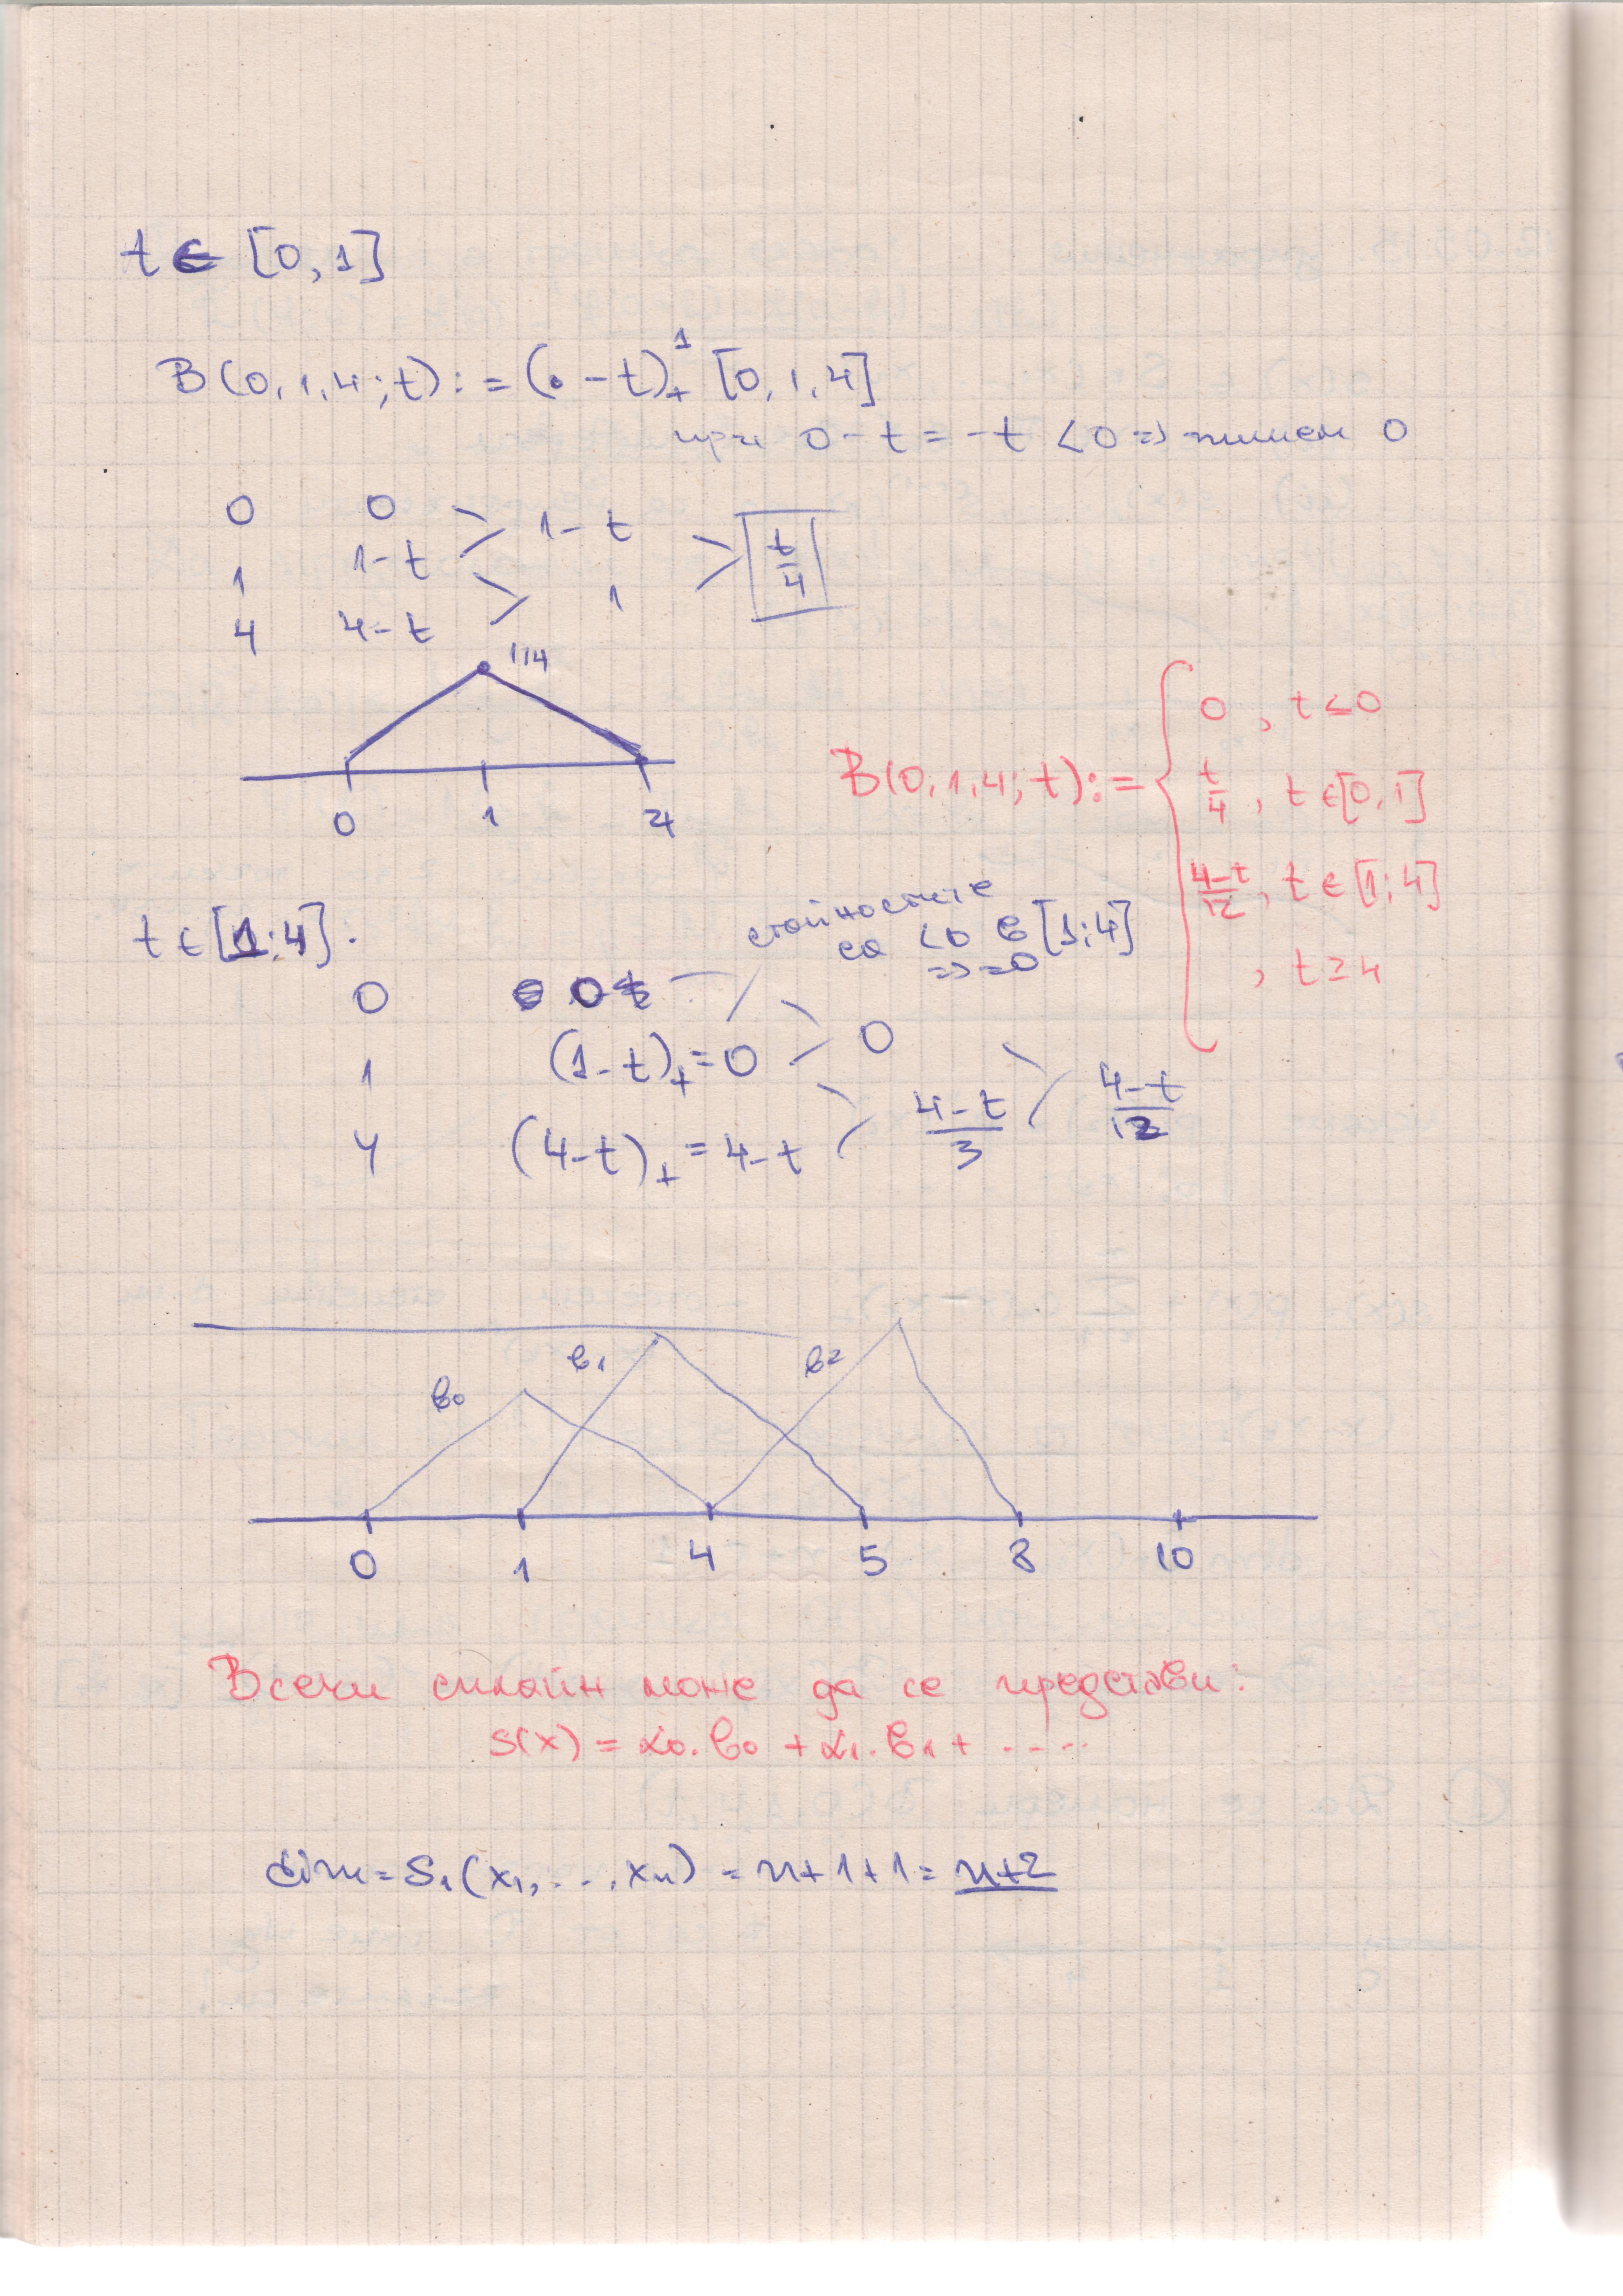 t ∈ [0,1]
B(0,1,4;t) := (• - t)₊¹ [0,1,4]
при 0 - t = -t < 0 => пишем 0
0 0
1-t
1 1-t
t/4
4 4-t 1
1/4
0 1 4
B(0,1,4;t) := { 0, t ≤ 0
t/4, t ∈ [0,1]
4-t/12, t ∈ [1;4]
, t ≥ 4
t ∈ [1;4].
стойностите
са <0 в [1;4]
=> =0
0 0
1 (1-t)₊ = 0 0
4 (4-t)₊ = 4-t 4-t/3 4-t/12
B₀ B₁ B₂
0 1 4 5 8 10
Всеки сплайн може да се представи:
S(x) = α₀.B₀ + α₁.B₁ + ....
dim = S₁(x₁,...,xₙ) = n+1+1 = n+2